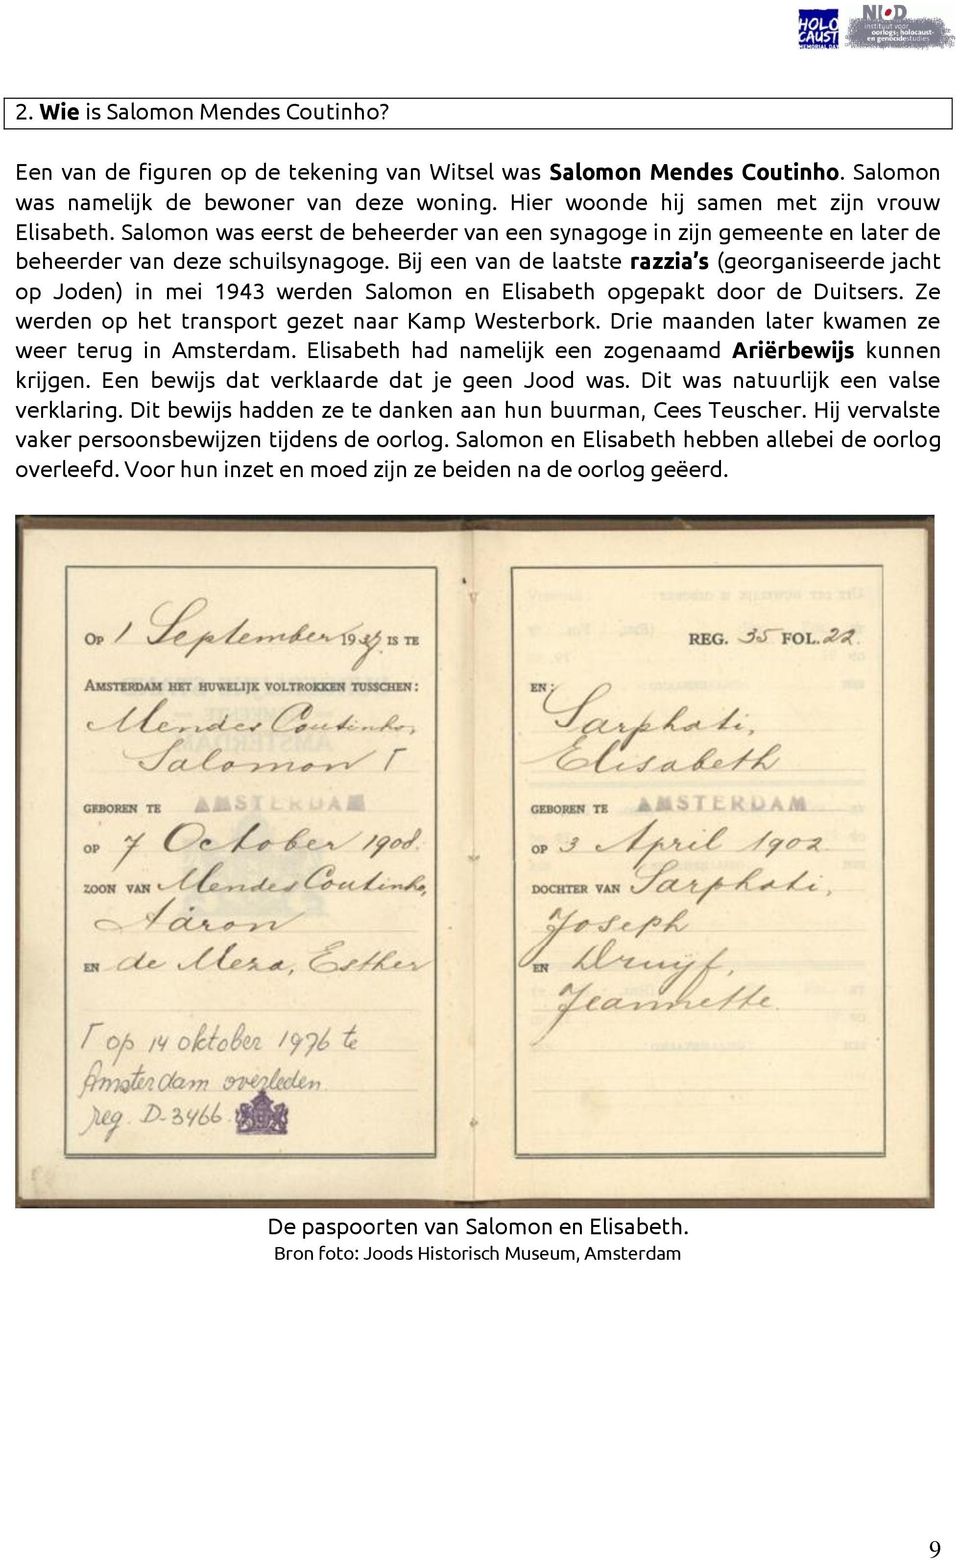 HOLO
CAUST
MEMORIAL DAY
NIOD
instituut voor
oorlogs-, holocaust-
en genocidestudies
2. Wie is Salomon Mendes Coutinho?
Een van de figuren op de tekening van Witsel was Salomon Mendes Coutinho. Salomon
was namelijk de bewoner van deze woning. Hier woonde hij samen met zijn vrouw
Elisabeth. Salomon was eerst de beheerder van een synagoge in zijn gemeente en later de
beheerder van deze schuilsynagoge. Bij een van de laatste razzia’s (georganiseerde jacht
op Joden) in mei 1943 werden Salomon en Elisabeth opgepakt door de Duitsers. Ze
werden op het transport gezet naar Kamp Westerbork. Drie maanden later kwamen ze
weer terug in Amsterdam. Elisabeth had namelijk een zogenaamd Ariërbewijs kunnen
krijgen. Een bewijs dat verklaarde dat je geen Jood was. Dit was natuurlijk een valse
verklaring. Dit bewijs hadden ze te danken aan hun buurman, Cees Teuscher. Hij vervalste
vaker persoonsbewijzen tijdens de oorlog. Salomon en Elisabeth hebben allebei de oorlog
overleefd. Voor hun inzet en moed zijn ze beiden na de oorlog geëerd.
OP 1 September 1937 IS TE
AMSTERDAM HET HUWELIJK VOLTROKKEN TUSSCHEN:
Mendes Coutinho,
Salomon Γ
GEBOREN TE AMSTERDAM
OP 7 October 1908.
ZOON VAN Mendes Coutinho,
Aäron
EN de Meza, Esther
Γ op 14 oktober 1976 te
Amsterdam overleden.
reg. D-3466.
REG. 35 FOL. 22.
EN: Sarphati,
Elisabeth
GEBOREN TE AMSTERDAM
OP 3 April 1902
DOCHTER VAN Sarphati,
Joseph
EN Druijf,
Jeannette.
De paspoorten van Salomon en Elisabeth.
Bron foto: Joods Historisch Museum, Amsterdam
9